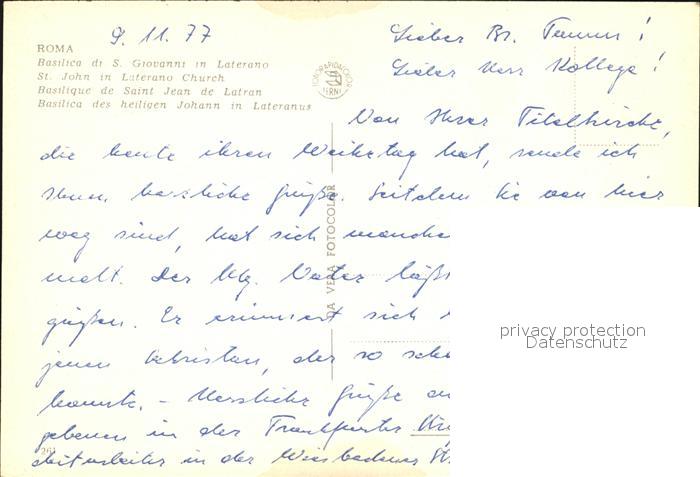 9. 11. 77
ROMA
Basilica di S. Giovanni in Laterano
St. John in Laterano Church
Basilique de Saint Jean de Latran
Basilica des heiligen Johann in Lateranus
FOTORAPIDACOLOR
TERNI
Lieber Br.
Lieber Herr Kollege!
Von Ihrer Titelkirche,
die heute ihren Weihetag hat, sende ich
Ihnen herzliche Grüße. Seitdem Sie von hier
weg sind, hat sich manche
Der Hlg. Vater läßt
grüßen. Er erinnert sich
jenen der so
konnte. - Herzliche Grüße
in der Frankfurter
Mitarbeiter in der Wiesbadener
261
DA VERA FOTOCOLOR
privacy protection
Datenschutz